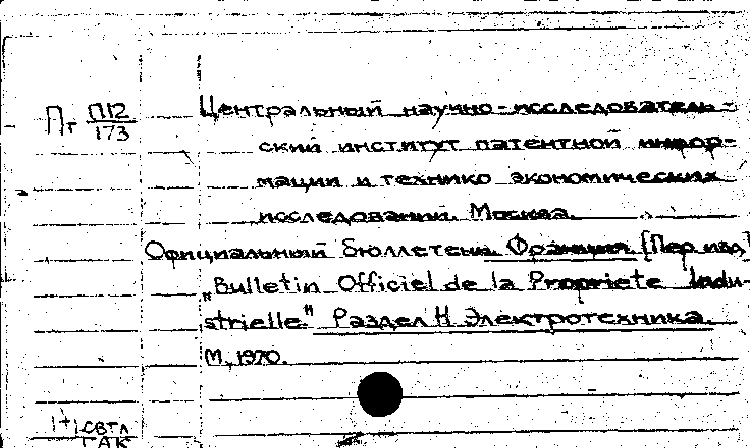 Пт П12/173 Центральный научно-исследователь-
ский институт патентной инфор-
мации и технико экономических
исследований. Москва.
Официальный бюллетень. Франция. [Пер. изд.]
„Bulletin Officiel de la Propriete Indu-
strielle." Раздел Н Электротехника.
М., 1970.
1+1 СВТЛ
ГАК